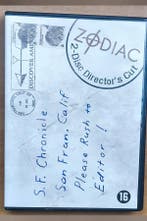 ZODIAC
2-Disc Director's Cut
S.F. Chronicle
San Fran. Calif
Please Rush to
Editor!
16